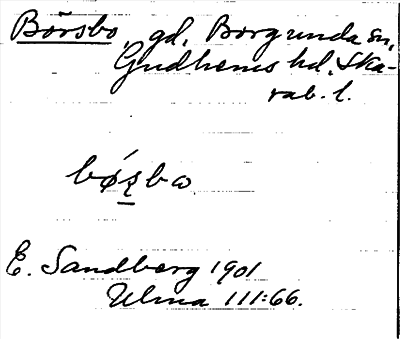 Börsbo, gd, Borgunda sn,
Gudhems hd. Ska-
rab. l.
bǿs̱bω
E. Sandberg 1901
Ulma 111:66.